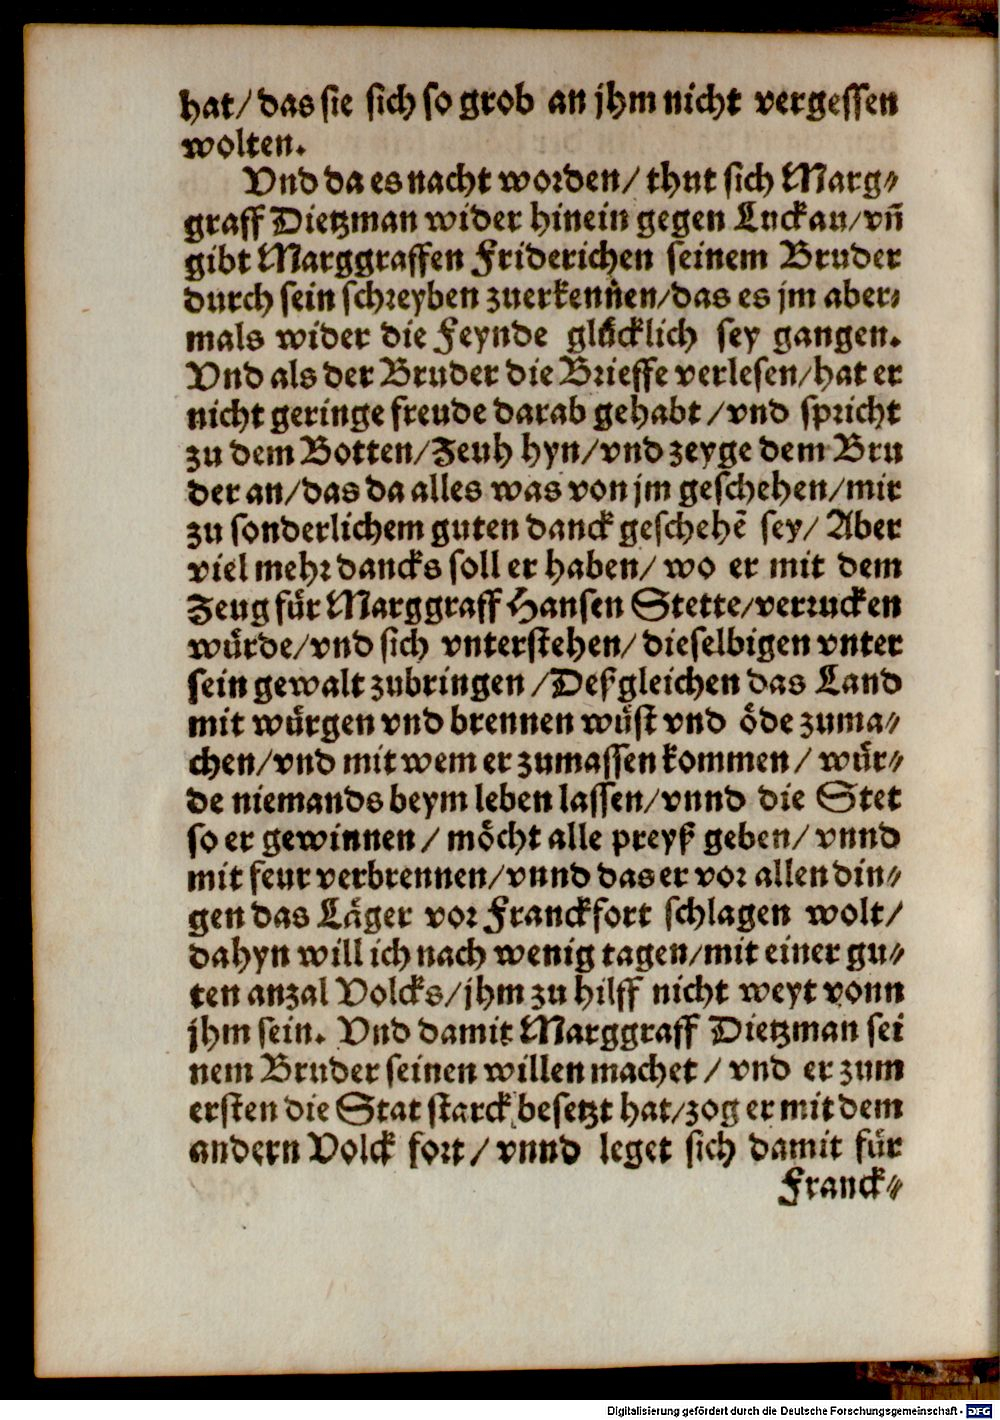 hat/ das sie sich so grob an jhm nicht vergessen
wolten.
Vnd da es nacht worden/ thut sich Marg⸗
graff Dietzman wider hinein gegen Luckau/ vn̄
gibt Marggraffen Friderichen seinem Bruder
durch sein schreyben zuerkennen/ das es jm aber⸗
mals wider die Feynde glücklich sey gangen.
Vnd als der Bruder die Brieffe verlesen/ hat er
nicht geringe freude darab gehabt/ vnd spricht
zu dem Botten/ Zeuh hyn/ vnd zeyge dem Bru
der an/ das da alles was von jm geschehen/ mir
zu sonderlichem guten danck geschehē sey/ Aber
viel mehr dancks soll er haben/ wo er mit dem
Zeug für Marggraff Hansen Stette/ verrucken
würde/ vnd sich vnterstehen/ dieselbigen vnter
sein gewalt zubringen/ Deßgleichen das Land
mit würgen vnd brennen wüst vnd öde zuma⸗
chen/ vnd mit wem er zumassen kommen/ wür⸗
de niemands beym leben lassen/ vnnd die Stet
so er gewinnen/ möcht alle preyß geben/ vnnd
mit feur verbrennen/ vnnd das er vor allen din⸗
gen das Läger vor Franckfort schlagen wolt/
dahyn will ich nach wenig tagen/ mit einer gu⸗
ten anzal Volcks/ jhm zu hilff nicht weyt vonn
jhm sein. Vnd damit Marggraff Dietzman sei
nem Bruder seinen willen machet/ vnd er zum
ersten die Stat starck besetzt hat/ zog er mit dem
andern Volck fort/ vnnd leget sich damit für
Franck⸗
Digitalisierung gefördert durch die Deutsche Forschungsgemeinschaft - DFG